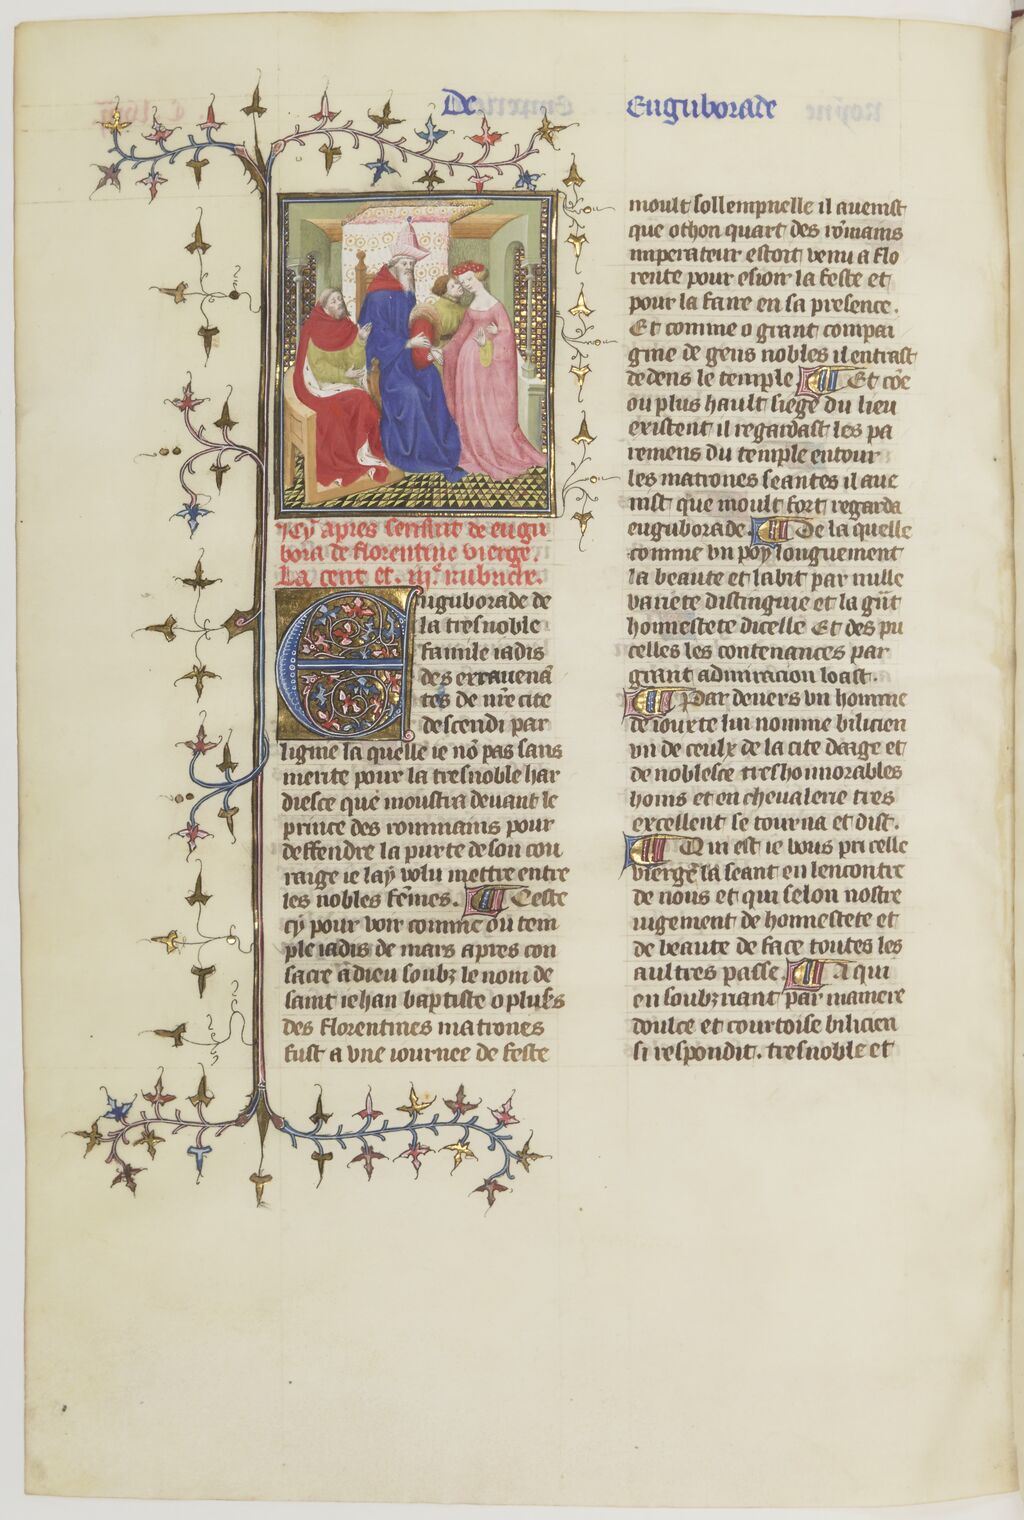 De Enguborade
Icy apres sensuit de eugu
bora de florentine vierge.
La cent et .iii.e rubriche.
Euguborade de
la tresnoble
famile iadis
des erravenã
tes de nr̃e cite
descendi par
ligine la quelle ie nõ pas sans
merite pour la tresnoble har
diesce que moustra devant le
prince des rommains pour
deffendre la purte de son cou
raige ie lay volu mettre entre
les nobles fẽmes. Ceste
cy pour voir comme ou tem
ple iadis de mars apres con
sacre a dieu soubz le nom de
saint iehan baptiste o plus̃
des florentines matrones
fust a vne iournee de feste
moult sollempnelle il avenist
que othon quart des rõmains
imperateur estoit venu a flo
rence pour esioir la feste et
pour la faire en sa presence.
Et comme o grant compai
gnie de gens nobles il entrast
dedens le temple. Et cõe
ou plus hault siege du lieu
existent il regardast les pa
remens du temple entour
les matrones seantes il ave
nist que moult fort regarda
euguborade. De la quelle
comme vn poy longuement
la beaute et labit par nulle
variete distinguie et la grãt
honnestete dicelle Et des pu
celles les contenances par
grant admiracion loast.
Par devers vn homme
de iouxte lui nomme bilicien
vn de ceulx de la cite daage et
de noblesce treshonnorables
homs et en chevalerie tres
excellent se tourna et dist.
Qui est ie vous pri celle
vierge la seant en lencontre
de nous et qui selon nostre
iugement de honnestete et
de beaute de face toutes les
aultres passe. A qui
en soubzriant par maniere
doulce et courtoise bilicien
si respondit. tresnoble et